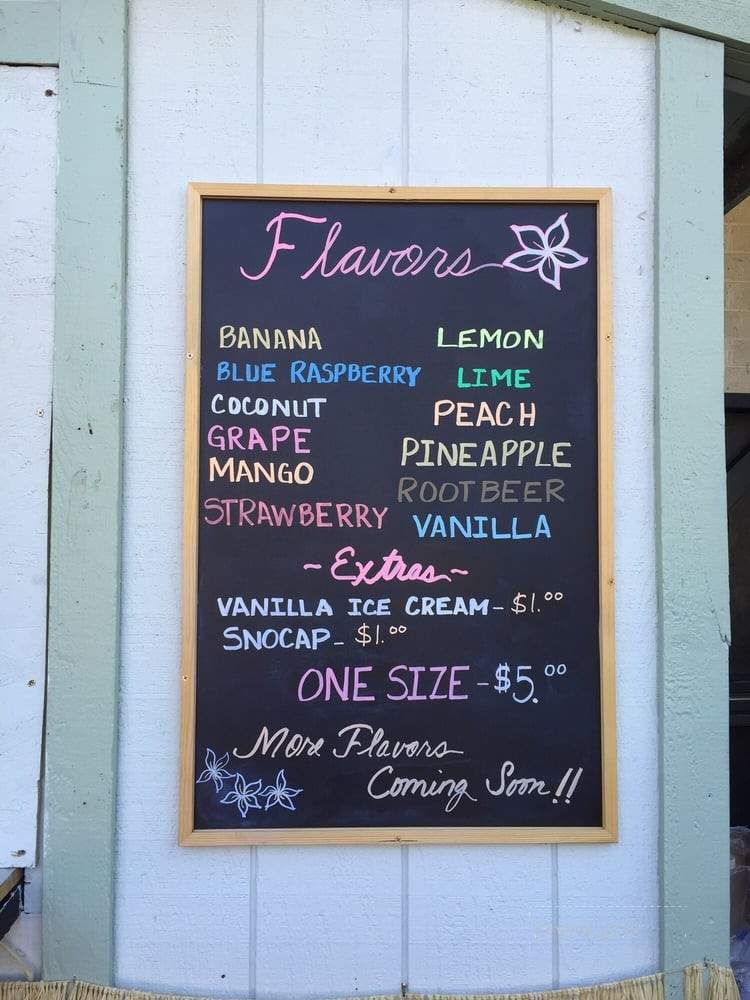 Flavors
BANANA
BLUE RASPBERRY
COCONUT
GRAPE
MANGO
STRAWBERRY
LEMON
LIME
PEACH
PINEAPPLE
ROOTBEER
VANILLA
~Extras~
VANILLA ICE CREAM - $1.00
SNOCAP - $1.00
ONE SIZE - $5.00
More Flavors
Coming Soon!!